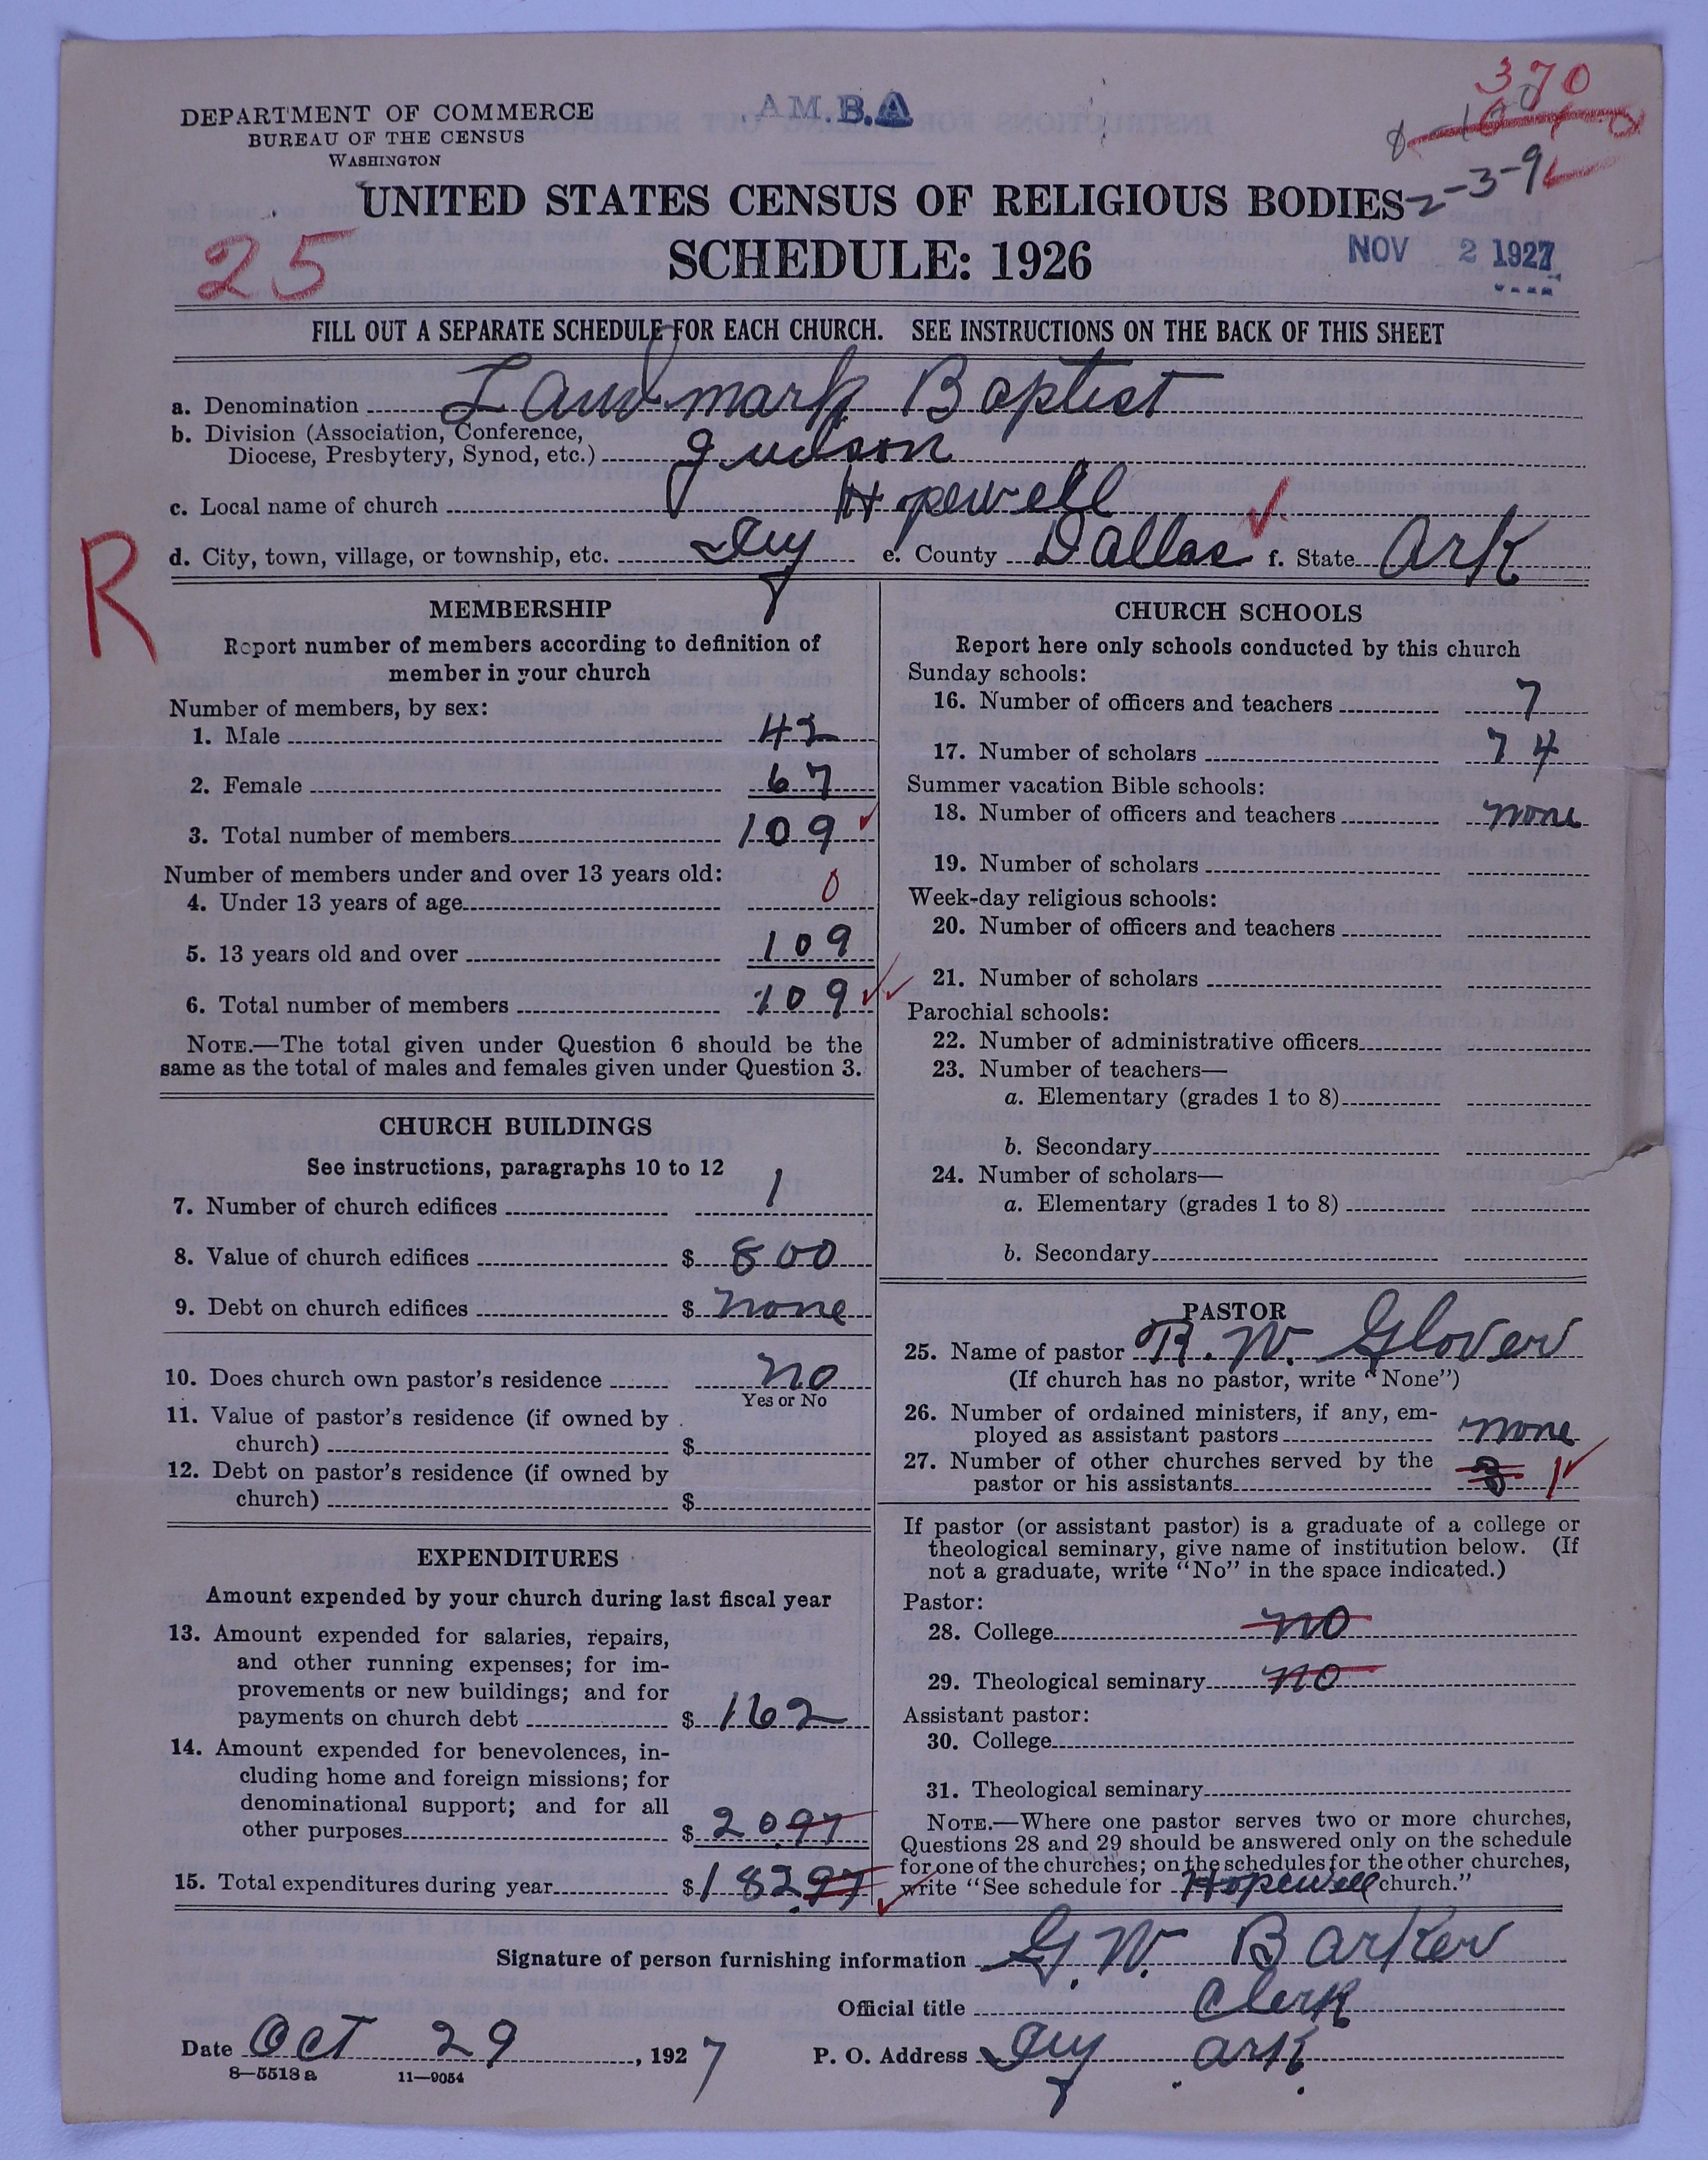 370
DEPARTMENT OF COMMERCE
BUREAU OF THE CENSUS
WASHINGTON
A M. B. A
2-3-9
UNITED STATES CENSUS OF RELIGIOUS BODIES
25
SCHEDULE: 1926
NOV 2 1927
FILL OUT A SEPARATE SCHEDULE FOR EACH CHURCH. SEE INSTRUCTIONS ON THE BACK OF THIS SHEET
a. Denomination Landmark Baptist
b. Division (Association, Conference,
Diocese, Presbytery, Synod, etc.) Judson
c. Local name of church Hopewell
d. City, town, village, or township, etc. Ivy e. County Dallas f. State Ark
R
MEMBERSHIP
Report number of members according to definition of
member in your church
Number of members, by sex:
1. Male 42
2. Female 67
3. Total number of members 109
Number of members under and over 13 years old:
4. Under 13 years of age 0
5. 13 years old and over 109
6. Total number of members 109
NOTE.—The total given under Question 6 should be the
same as the total of males and females given under Question 3.
CHURCH BUILDINGS
See instructions, paragraphs 10 to 12
7. Number of church edifices 1
8. Value of church edifices $ 800
9. Debt on church edifices $ none
10. Does church own pastor's residence no
Yes or No
11. Value of pastor's residence (if owned by
church) $
12. Debt on pastor's residence (if owned by
church) $
EXPENDITURES
Amount expended by your church during last fiscal year
13. Amount expended for salaries, repairs,
and other running expenses; for im-
provements or new buildings; and for
payments on church debt $ 162
14. Amount expended for benevolences, in-
cluding home and foreign missions; for
denominational support; and for all
other purposes $ 20 97
15. Total expenditures during year $ 182 97
CHURCH SCHOOLS
Report here only schools conducted by this church
Sunday schools:
16. Number of officers and teachers 7
17. Number of scholars 74
Summer vacation Bible schools:
18. Number of officers and teachers none
19. Number of scholars
Week-day religious schools:
20. Number of officers and teachers
21. Number of scholars
Parochial schools:
22. Number of administrative officers
23. Number of teachers—
a. Elementary (grades 1 to 8)
b. Secondary
24. Number of scholars—
a. Elementary (grades 1 to 8)
b. Secondary
PASTOR
25. Name of pastor R. W. Glover
(If church has no pastor, write "None")
26. Number of ordained ministers, if any, em-
ployed as assistant pastors none
27. Number of other churches served by the
pastor or his assistants 1
If pastor (or assistant pastor) is a graduate of a college or
theological seminary, give name of institution below. (If
not a graduate, write "No" in the space indicated.)
Pastor:
28. College no
29. Theological seminary no
Assistant pastor:
30. College
31. Theological seminary
NOTE.—Where one pastor serves two or more churches,
Questions 28 and 29 should be answered only on the schedule
for one of the churches; on the schedules for the other churches,
write "See schedule for Hopewell church."
Signature of person furnishing information G. W. Barker
Official title Clerk
Date Oct 29, 1927 P. O. Address Ivy Ark.
8—5513 a 11—9054